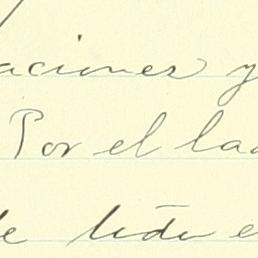 aciones y
Por el lad
de